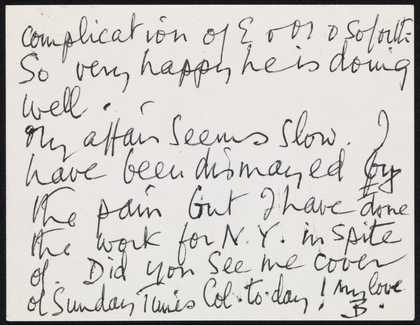 complication of E & O & so forth.
So very happy he is doing
well.
My affair seems slow. I
have been dismayed by
the pain but I have done
the work for N.Y. in spite
of. Did you see me cover
of Sunday Times Col. to-day! My love
B.